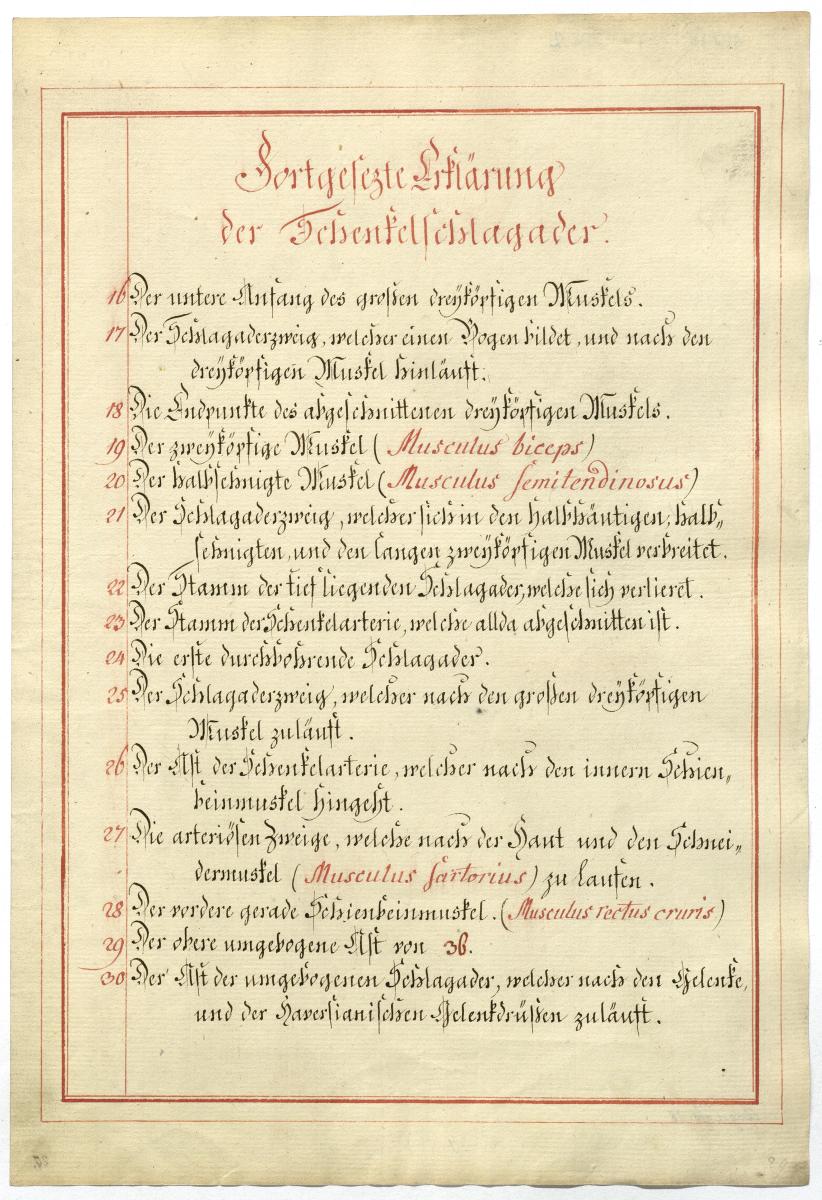 Fortgesezte Erklärung
der Schenkelschlagader.
16 Der untere Anfang des großen dreÿköpfigen Muskels.
17 Der Schlagaderzweig, welcher einen Bogen bildet, und nach den
dreÿköpfigen Muskel hinläuft.
18 Die Endpunkte des abgeschnittenen dreÿköpfigen Muskels.
19 Der zweÿköpfige Muskel (Musculus biceps)
20 Der halbsehnigte Muskel (Musculus semitendinosus)
21 Der Schlagaderzweig, welcher sich in den halbhäutigen, halb„
sehnigten, und den langen zweÿköpfigen Muskel verbreitet.
22 Der Stamm der tief liegenden Schlagader, welche sich verlieret.
23 Der Stamm der Schenkelarterie, welche allda abgeschnitten ist.
24 Die erste durchbohrende Schlagader.
25 Der Schlagaderzweig, welcher nach den großen dreÿköpfigen
Muskel zuläuft.
26 Der Ast der Schenkelarterie, welcher nach den innern Schien„
beinmuskel hingeht.
27 Die arteriösen Zweige, welche nach der Haut und den Schnei„
dermuskel (Musculus sartorius) zu laufen.
28 Der vordere gerade Schienbeinmuskel. (Musculus rectus cruris)
29 Der obere umgebogene Ast von 36.
30 Der Ast der umgebogenen Schlagader, welcher nach den Gelenke,
und der Haversianischen Gelenkdrüßen zuläuft.